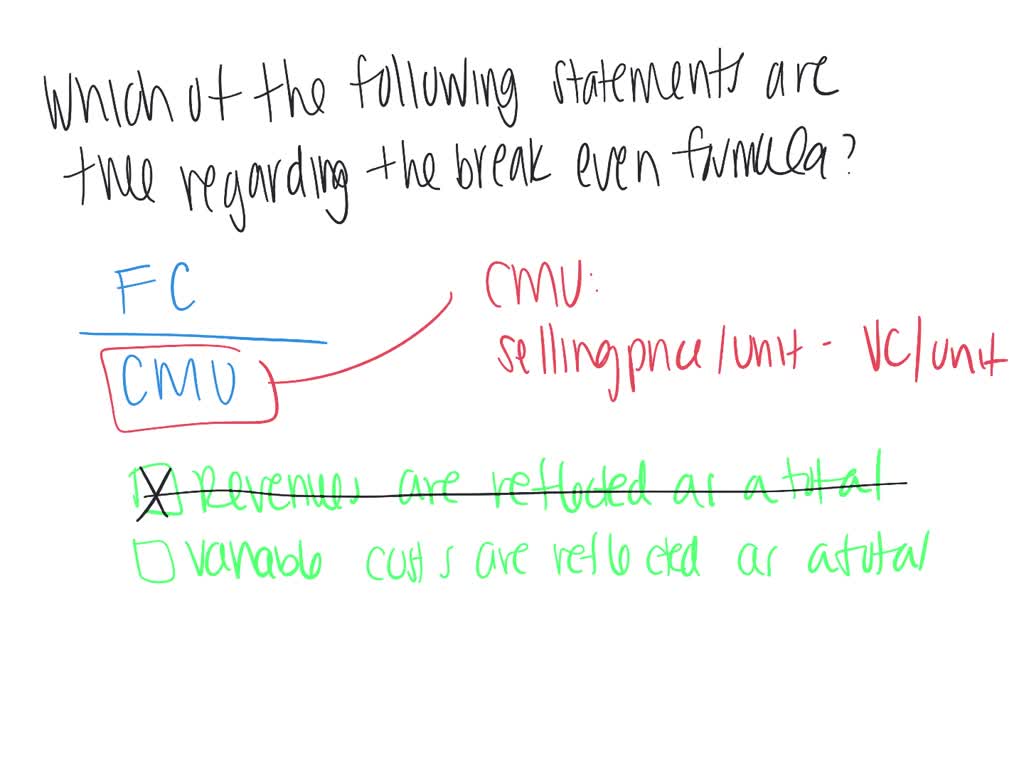 Which of the following statements are
true regarding the break even formula?
FC
CMU
CMU:
selling price/unit - VC/unit
Revenues are reflected as a total
Variable costs are reflected as a total